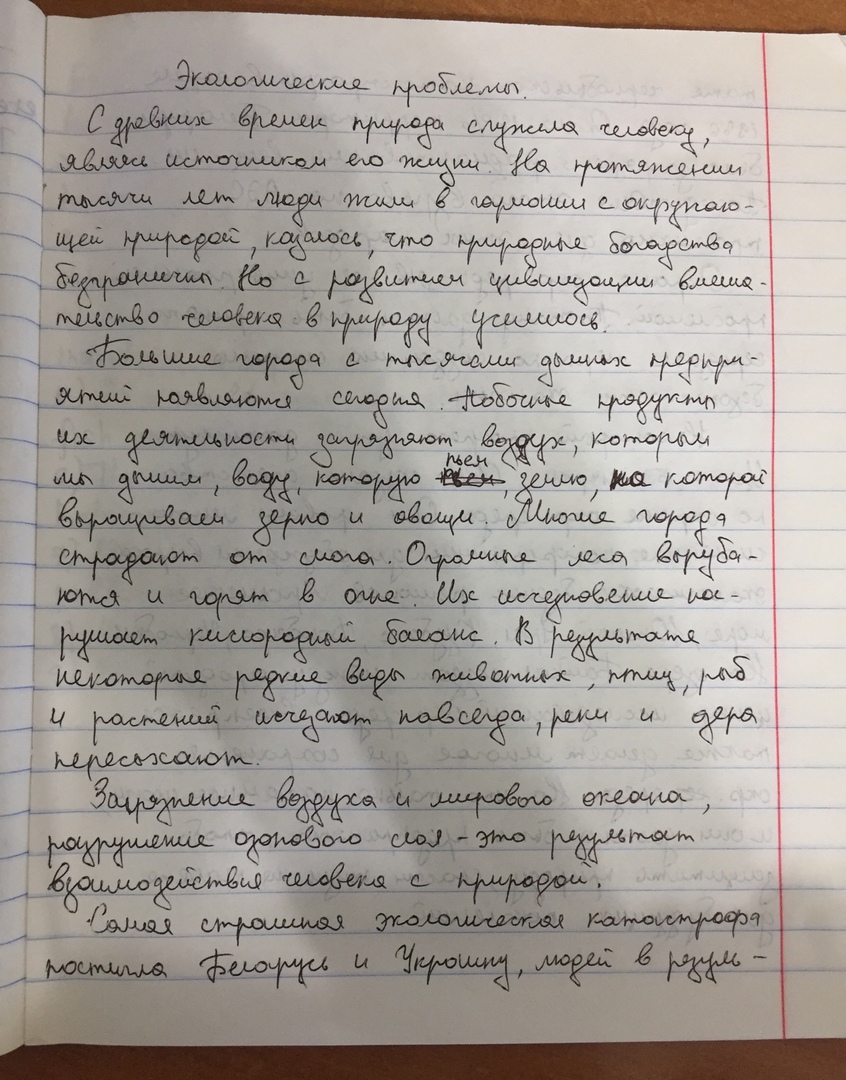 Экологические проблемы.
С древних времен природа служила человеку,
являясь источником его жизни. На протяжении
тысячи лет люди жили в гармонии с окружаю-
щей природой, казалось, что природные богадства
безграничны. Но с развитием цивилизации вмеша-
тельство человека в природу усилилось.
Большие города с тысячами дымных предпри-
ятий появляются сегодня. Побочные продукты
их деятельности загрязняют воздух, которым
мы дышим, воду, которую пьем, землю, на которой
выращиваем зерно и овощи. Многие города
страдают от смога. Огромные леса выруба-
ются и горят в огне. Их исчезновение на-
рушает кислородный баланс. В результате
некоторые редкие виды животных, птиц, рыб
и растений исчезают навсегда, реки и озера
пересыхают.
Загрязнение воздуха и мирового океана,
разрушение озонового слоя - это результат
взаимодействия человека с природой.
Самая страшная экологическая катастрофа
постигла Беларусь и Украину, людей в резуль-